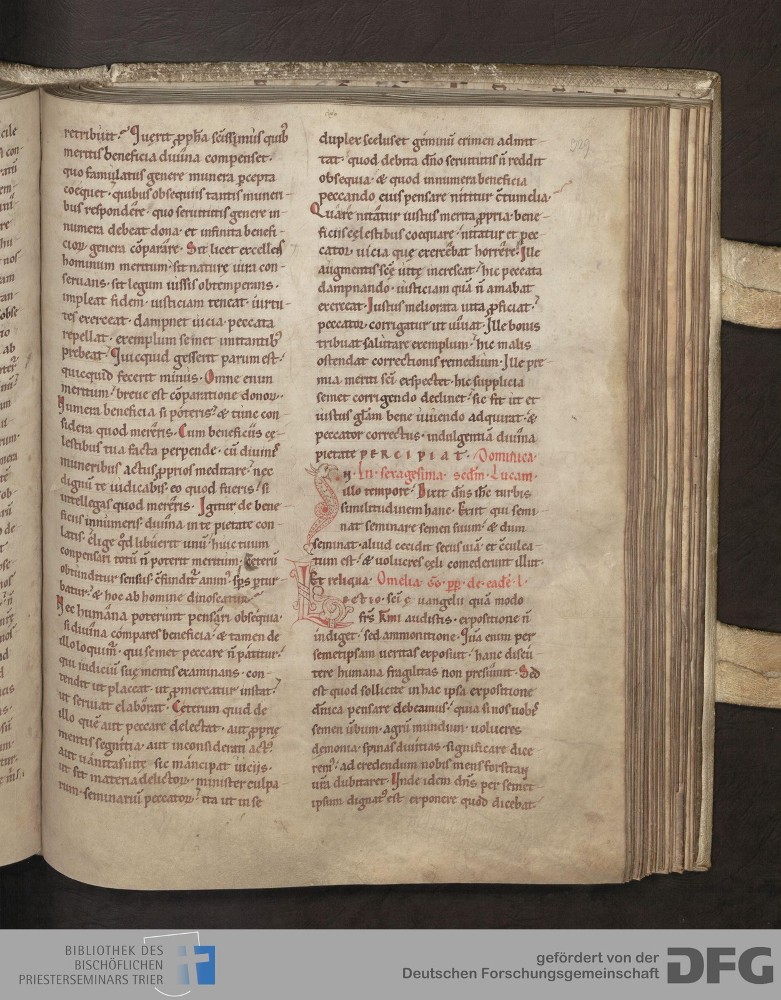 retribuit. Querit ꝓph̄a sc̄issimus quib᷒
meritis beneficia diuina compenset.
quo famulatus genere munera ꝑcepta
coequet. quibus obsequiis tantis muneri-
bus respondere. quo seruitutis genere in-
numera debeat dona. et infinita benefi-
cioꝝ genera cōparare. Sit licet excelles
hominum meritum. sit naturę iura con-
seruans. sit legum iussis obtemperans.
impleat fidem. iusticiam teneat. uirtu-
tes exerceat. dampnet uicia. peccata
repellat. exemplum se imitantib᷒
prebeat. Quicquid gesserit parum est.
quicquid fecerit minus. Omne enim
meritum. breue est cōparatione donoꝝ.
Numera beneficia si poteris. & tunc con-
sidera quod mereris. Cum beneficiis cę-
lestibus tua facta perpende. cū diuinis
muneribus actus ꝓprios meditare. nec
dignū te iudicabis. eo quod fueris. si
intellegas quod mereris. Igitur de bene-
ficiis innumeris. diuina in te pietate con-
latis. elige qd̄ libuerit unū. huic tuum
compensari totū n̄ poterit meritum. Ceterū
obtunditur sensus. cfundit᷒ anim᷒. sp̄s ꝑtur-
batur. & hoc ab homine dinoscatur.
Nec humana poterunt pensari obsequia.
si diuina compares beneficia. & tamen de
illo loquim̄. qui semet peccare n̄ patitur.
qui iudiciū suę mentis examinans. con-
tendit ut placeat. ut ꝓmereatur instat.
ut seruiat elaborat. Ceterum quid de
illo quē aut peccare delectat. aut ꝓprię
mentis segnitia. aut inconsiderati act᷒.
aut uanitas uitę sic mancipat uiciis.
ut sit materia delictoꝝ. minister culpa
rum. seminariū peccatoꝝ. ita ut in se
duplex scelus et geminū crimen admit-
tat. quod debita dn̄o seruitutis n̄ reddit
obsequia. & quod innumera beneficia
peccando eius pensare nititur ctumelia.
Quare nitatur iustus merita ꝓpria bene-
ficiis cęlestibus coequare. nitatur et pec-
cator uicia quę exercebat horrere. Ille
augmentis scę uitę increscat. hic peccata
dampnando. iusticiam quā n̄ amabat
exerceat. Iustus meliorata uita ꝓficiat.
peccator corrigatur ut uiuat. Ille bonis
tribuat salutare exemplum. hic malis
ostendat correctionis remedium. Ille pre-
mia meriti sci exspectet. hic supplicia
semet corrigendo declinet. sic fit ut et
iustus gl̄am bene uiuendo adquirat. &
peccator correctus. indulgentiā diuina
pietate PERCIPIAT. Dominica
In sexagesima. scdm Lucam.
In illo tempore. Dixit dn̄s ihc turbis
similitudinem hanc. Exiit qui semi-
nat seminare semen suum. & dum
seminat. aliud cecidit secus uiā. et cculca-
tum est. & uolucres cęli comederunt illut.
Et reliqua. Omelia
Lectio. sci ęuangelii quā modo
frs Kmi audistis. expositione n̄
indiget. sed ammonitione. Quā enim per
semetipsam ueritas exposuit. hanc discu-
tere humana fragilitas non presumit. Sed
est quod sollicite in hac ipsa expositione
dn̄ica pensare debeamus. quia si nos uobis
semen ūbum. agrū mundum. uolucres
demonia. spinas diuitias. significare dice
rem᷒. ad credendum nobis mens forsitan
ur̄a dubitaret. Unde idem dn̄s per semet-
ipsum dignat᷒ est exponere quod dicebat.
129
BIBLIOTHEK DES
BISCHÖFLICHEN
PRIESTERSEMINARS TRIER
gefördert von der
Deutschen Forschungsgemeinschaft
DFG